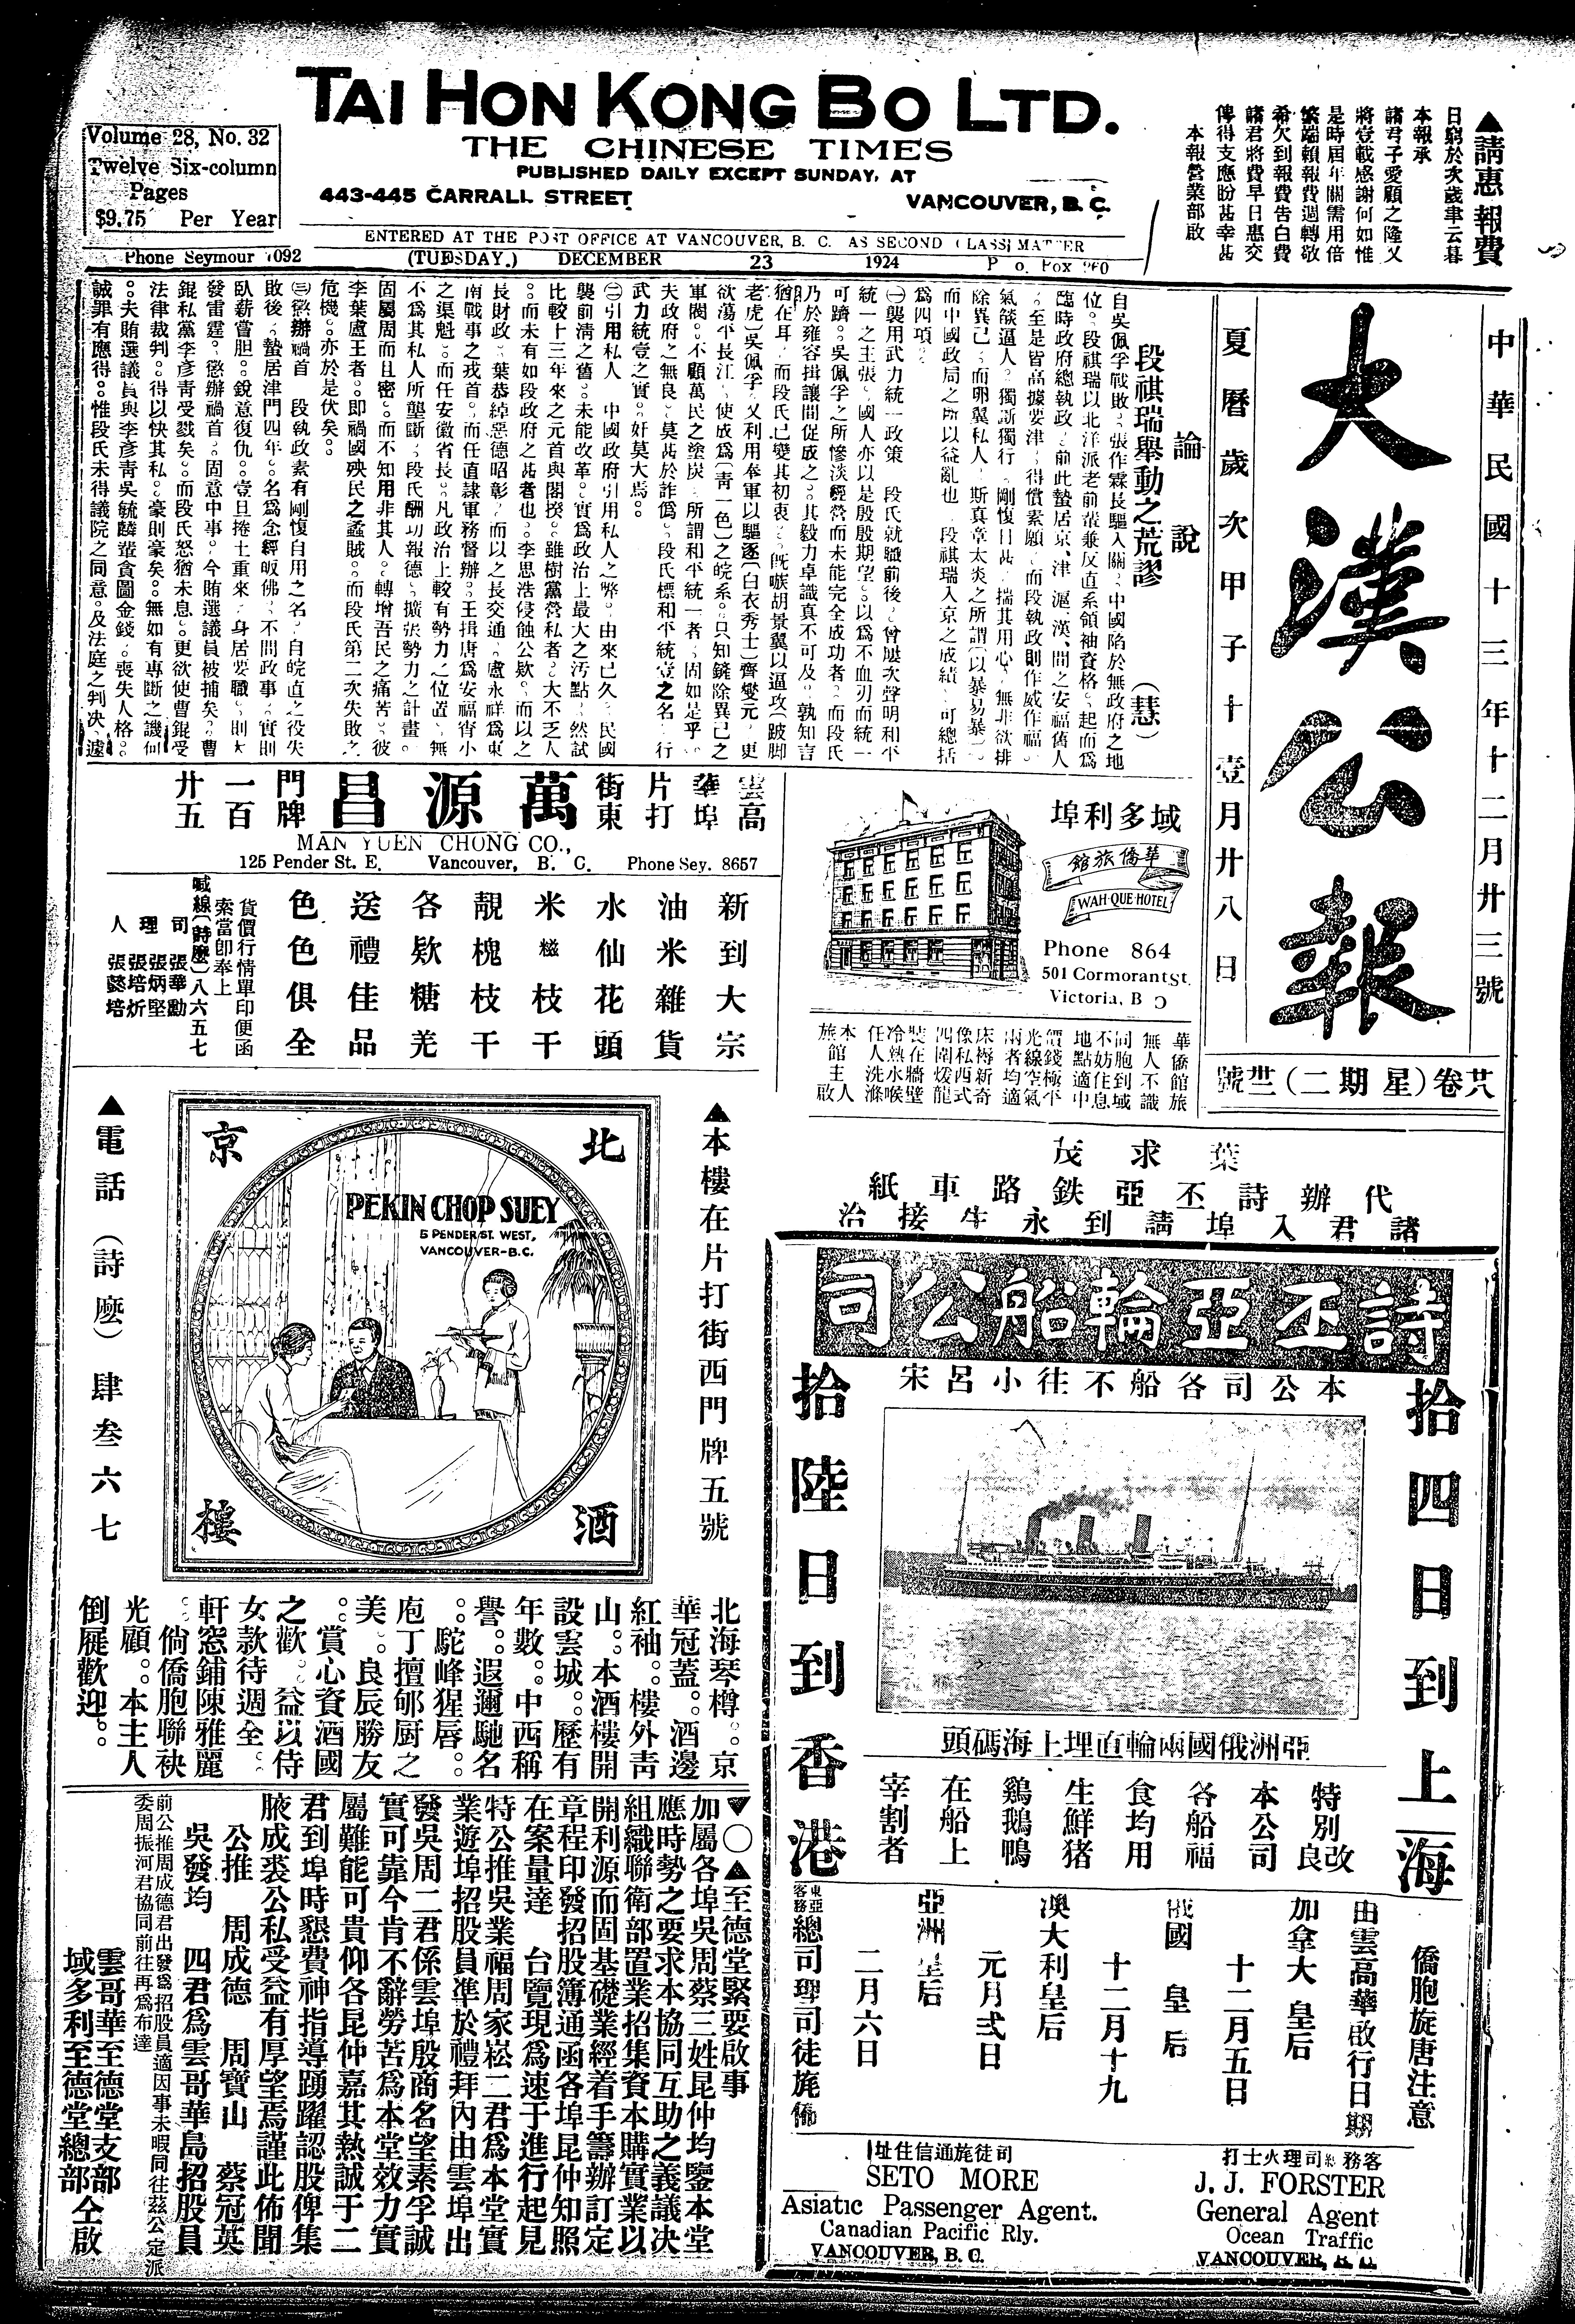 TAI HON KONG BO LTD.
THE CHINESE TIMES
PUBLISHED DAILY EXCEPT SUNDAY, AT
443-445 CARRALL STREET
VANCOUVER, B. C.
Volume 28, No. 32
Twelve Six-column
Pages
$9.75 Per Year
ENTERED AT THE POST OFFICE AT VANCOUVER, B. C. AS SECOND CLASS MATTER
Phone Seymour 1092
(TUESDAY.) DECEMBER 23 1924
▲請惠報費
日窮於次歲聿云暮
本報承
諸君子愛顧之隆又
將壹載感謝何如惟
是時屆年關需用倍
繁端賴報費週轉敬
希欠到報費告白費
諸君將費早日惠交
俾得支應盼甚幸甚
本報營業部啟
中華民國十三年十二月廿三號
大漢公報
夏曆歲次甲子十壹月廿八日
號卅(二期星)卷廿八
論說
段祺瑞舉動之荒謬 (慧)
自吳佩孚戰敗。張作霖長驅入關。中國陷於無政府之地
位。段祺瑞以北洋派老前輩兼反直系領袖資格。起而爲
臨時政府總執政。前此蟄居京、津、滬、漢、間之安福舊人
。至是皆高據要津。得償素願。而段執政則作威作福。
氣燄逼人。獨斷獨行。剛愎日甚。揣其用心。無非欲排
除異己。而卵翼私人。斯真章太炎之所謂(以暴易暴)。
而中國政局之所以益亂也。段祺瑞入京之成績。可總括
爲四項。
㊀襲用武力統一政策 段氏就職前後。曾屢次聲明和平
統一之主張。國人亦以是殷殷期望。以爲不血刃而統一
可躋。吳佩孚之所慘淡經營而未能完全成功者。而段氏
乃於雍容揖讓間促成之。其毅力卓識真不可及。孰知言
猶在耳。而段氏已變其初衷。既嗾胡景翼以逼攻(跛脚
老虎)吳佩孚。又利用奉軍以驅逐(白衣秀士)齊燮元。更
欲蕩平長江。使成爲(靑一色)之皖系。只知鏟除異己之
軍閥。不顧萬民之塗炭。所謂和平統一者。固如是乎。
夫政府之無良。莫甚於詐僞。段氏標和平統壹之名。行
武力統壹之實。奸莫大焉。
㊁引用私人 中國政府引用私人之弊。由來已久。民國
襲前淸之舊。未能改革。實爲政治上最大之汚點。然試
比較十三年來之元首與閣揆。雖樹黨營私者。大不乏人
。而未有如段政府之甚者也。李思浩侵蝕公欵。而以之
長財政。葉恭綽惡德昭彰。而以之長交通。盧永祥爲東
南戰事之戎首。而任直隷軍務督辦。王揖唐爲安福宵小
之渠魁。而任安徽省長。凡政治上較有勢力之位置。無
不爲其私人所壟斷。段氏酬功報德。擴張勢力之計畫。
固屬周而且密。而不知用非其人。轉增吾民之痛苦。彼
李葉盧王者。即禍國殃民之蟊賊。而段氏第二次失敗之
危機。亦於是伏矣。
㊂懲辦禍首 段執政素有剛愎自用之名。自皖直之役失
敗後。蟄居津門四年。名爲念經皈佛。不問政事。實則
臥薪嘗胆。銳意復仇。壹旦捲土重來。身居要職。則大
發雷霆。懲辦禍首。固意中事。今賄選議員被捕矣。曹
錕私黨李彥靑受戮矣。而段氏恕猶未息。更欲使曹錕受
法律裁判。得以快其私。豪則豪矣。無如有專斷之譏何
。夫賄選議員與李彥靑吳毓麟輩貪圖金錢。喪失人格。
誠罪有應得。惟段氏未得議院之同意。及法庭之判決。遽
雲高華埠片打街東
萬源昌
門牌一百廿五
MAN YUEN CHONG CO.,
125 Pender St. E. Vancouver, B. C. Phone Sey. 8657
新到大宗
油米雜貨
水仙花頭
米糍枝干
靚槐枝干
各欵糖羌
送禮佳品
色色俱全
貨價行情單印便函
索當卽奉上
喊線(詩麼)八六五七
司理人
張華勳
張炳堅
張培炘
張懿培
埠利多域
館旅僑華
WAH QUE HOTEL
Phone 864
501 Cormorant St.
Victoria, B C
華僑館旅
無人不識
同胞到域
不妨住息
地點適中
價錢極平
光線空氣
兩者均適
床褥新奇
像私西式
四圍煖龍
裝在牆壁
冷熱水喉
任人洗滌
本館主人
旅啟
▲本樓在片打街西門牌五號
北京酒樓
PEKIN CHOP SUEY
5 PENDER ST. WEST,
VANCOUVER-B.C.
▲電話(詩麼)肆叁六七
北海琴樽。。京
華冠蓋。。酒邊
紅袖。。樓外靑
山。。本酒樓開
設雲城。。歷有
年數。。中西稱
譽。。遐邇馳名
。。駝峰猩唇。。
庖丁擅郇厨之
美。。良辰勝友
。。賞心資酒國
之歡。。益以侍
女款待週全。。
軒窓鋪陳雅麗
。。倘僑胞聯袂
光顧。。本主人
倒屣歡迎。。
茂求葉
紙車路鉄亞丕詩辦代
洽接生永到請埠入君諸
司公船輪亞丕詩
宋呂小往不船各司公本
拾四日到上海
拾陸日到香港
頭碼海上埋直輪兩國俄洲亞
特別改良
本公司
各船福
食均用
生鮮猪
鷄鵝鴨
在船上
宰割者
僑胞旋唐注意
由雲高華啟行日期
加拿大皇后
十二月五日
俄國皇后
十二月十九
澳大利皇后
元月弍日
亞洲皇后
二月六日
東亞客務總司理司徒旄
打士火理司總務客
J. J. FORSTER
General Agent
Ocean Traffic
VANCOUVER, B. C.
址住信通旄徒司
SETO MORE
Asiatic Passenger Agent.
Canadian Pacific Rly.
VANCOUVER, B. C.
▼〇▲至德堂緊要啟事
加屬各埠吳周蔡三姓昆仲均鑒本堂
應時勢之要求本協同互助之義議决
組織聯衛部置業招集資本購實業以
開利源而固基礎業經着手籌辦訂定
章程印發招股簿通函各埠昆仲知照
在案量達 台覽現爲速于進行起見
特公推吳業福周家崧二君爲本堂實
業遊埠招股員準於禮拜內由雲埠出
發吳周二君係雲埠殷商名望素孚誠
實可靠今肯不辭勞苦爲本堂效力實
屬難能可貴仰各昆仲嘉其熱誠于二
君到埠時懇費神指導踴躍認股俾集
腋成裘公私受益有厚望焉謹此佈聞
公推 周成德 周寶山 蔡冠英
吳發均 四君爲雲哥華島招股員
前公推周成德君出發爲招股員適因事未暇同往茲公定派
委周振河君協同前往再爲布達
雲哥華至德堂支部
域多利至德堂總部 仝啟